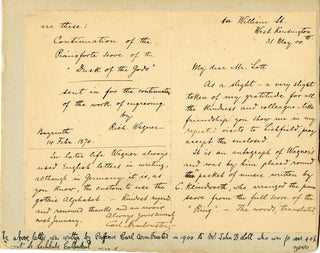 are these:
Continuation of the
Pianoforte Score of the
"Dusk of the Gods"
sent in for the continuation
of the work of engraving
by
Rich. Wagner
Bayreuth
14 Febr. 1874.
In later life Wagner always
used English letters in writing,
although in Germany it is, as
you know, the custom to use the
gothic Alphabet. — Kindest regards
and renewed thanks and au revoir
Always yours sincerely
Carl Armbruster
William St.
West Kensington
31 May 00
My dear Mr. Lott
As a slight — a very slight
token of my gratitude for all
the kindness and colleague-like
friendship you show me in my
visits to Lichfield pray
accept the enclosed.
It is an autograph of Wagner's
and was by him placed round
the packet of music written by
C. Klindworth who arranged the piano
score from the full score of the
"Ring". — The words, translated
The above letter was written by Professor Carl Armbruster in 1900 to Mr. John B. Lott who was for over 40
years at Lichfield Cathedral